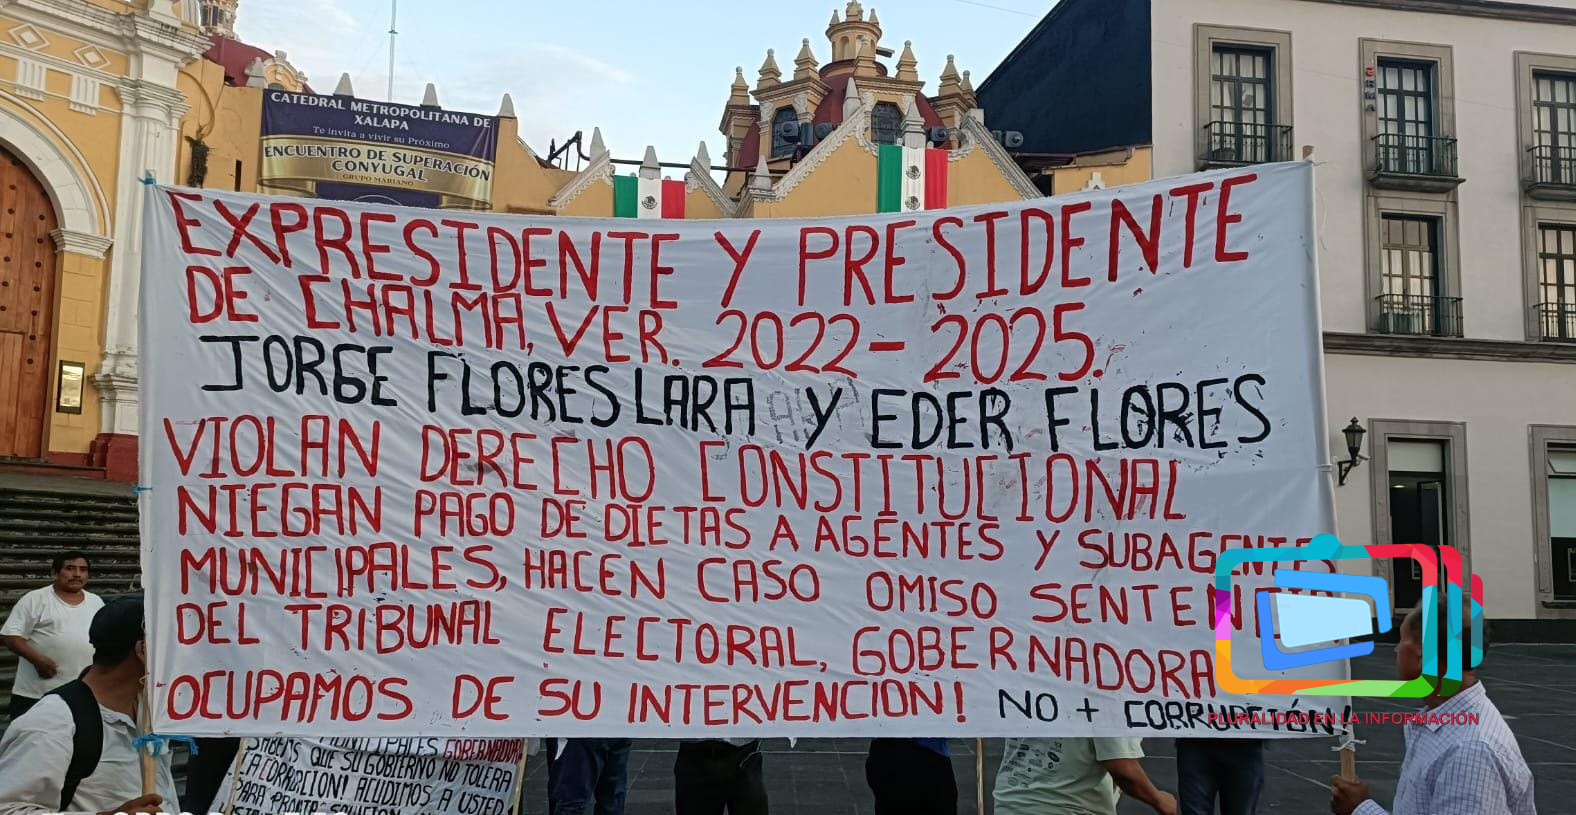 CATEDRAL METROPOLITANA DE
XALAPA
Te invita a vivir su Próximo
ENCUENTRO DE SUPERACIÓN
CONYUGAL
GRUPO MARIANO
EXPRESIDENTE Y PRESIDENTE
DE CHALMA, VER. 2022-2025.
JORGE FLORES LARA Y EDER FLORES
VIOLAN DERECHO CONSTITUCIONAL
NIEGAN PAGO DE DIETAS A AGENTES Y SUBAGENTES
MUNICIPALES, HACEN CASO OMISO SENTENCIA
DEL TRIBUNAL ELECTORAL, GOBERNADORA
OCUPAMOS DE SU INTERVENCIÓN! NO + CORRUPCIÓN!
PLURALIDAD EN LA INFORMACIÓN
MUNICIPALES GOBERNADORA
SABEMS QUE SU GOBIERNO NO TOLERA
LA CORRUPCION! ACUDIMOS A USTED
PARA PRONTA SOLUCION